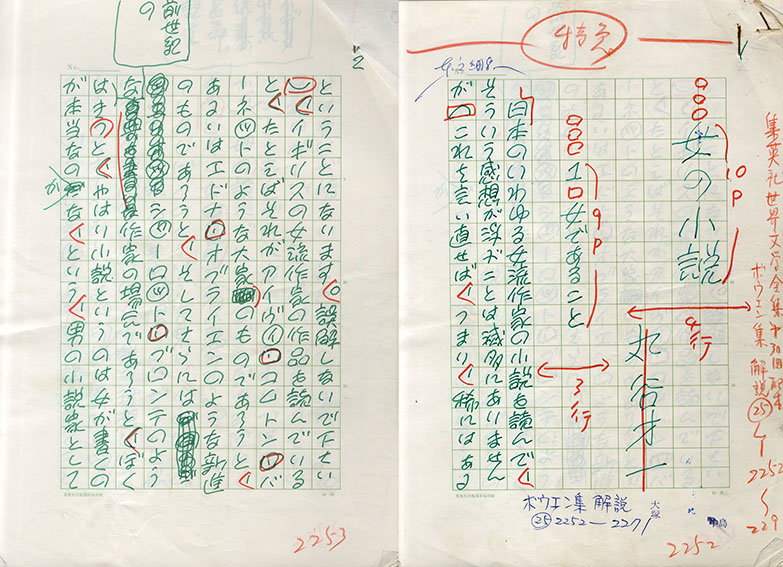 集英社世界文学全集 第30回配本
ボウエン集 解説 ㉕
2252
229
特急
女の小説
10P
丸谷才一
4行
女であること
9P
3行
日本のいわゆる女流作家の小説を読んで、
そういう感想が浮ぶことは滅多にありません
が、これを言い直せば、つまり、稀にはある
ボウエン集 解説
㉕ 2252―2271
大塚
2252
2
ということになります。誤解しないで下さい。
イギリスの女流作家の作品を読んでいる
と、たとえばそれがアイヴィ・コムトン=バ
ーネットのような大家のものであろうと、
あるいはエドナ・オブライエンのような新進
のものであろうと、そしてさらには
前世紀の
シャーロット・ブロンテのよう
な作家の場合であろうと、ぼく
はきっと、やはり小説というのは女が書くの
が本当なのかな、という、男の小説家として
2253